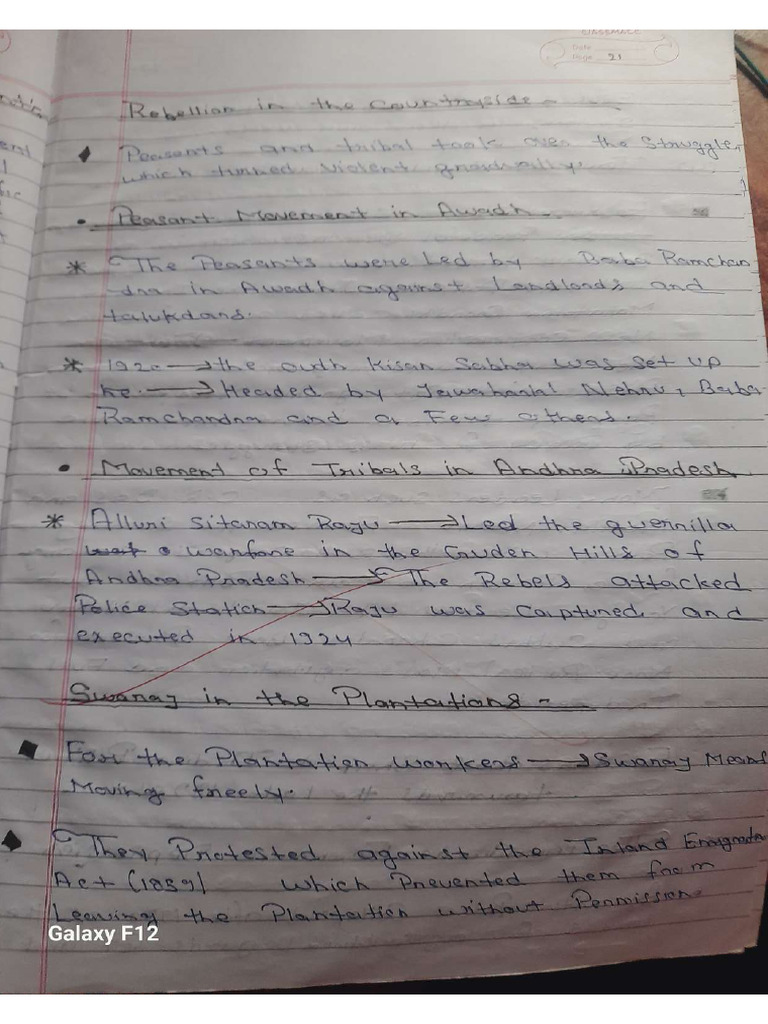 classmate
Date
Page 21
Rebellion in the Countryside -
Peasants and tribal took over the Struggle,
which turned violent gradually.
Peasant Movement in Awadh -
* The Peasants were Led by Baba Ramchan
-dra in Awadh against Landlords and
talukdars.
* 1920 → the oudh Kisan Sabha was set up
→ Headed by Jawaharlal Nehru, Baba
Ramchandra and a Few others.
• Movement of Tribals in Andhra Pradesh
* Alluri Sitaram Raju → Led the guerrilla
warfare in the Guden Hills of
Andhra Pradesh → The Rebels attacked
Police Station → Raju was Captured and
executed in 1924
Swaraj in the Plantations -
For the Plantation workers → Swaraj Means
Moving freely.
They Protested against the Inland
Act (1859) which Prevented them from
Leaving the Plantation without Permission
Galaxy F12